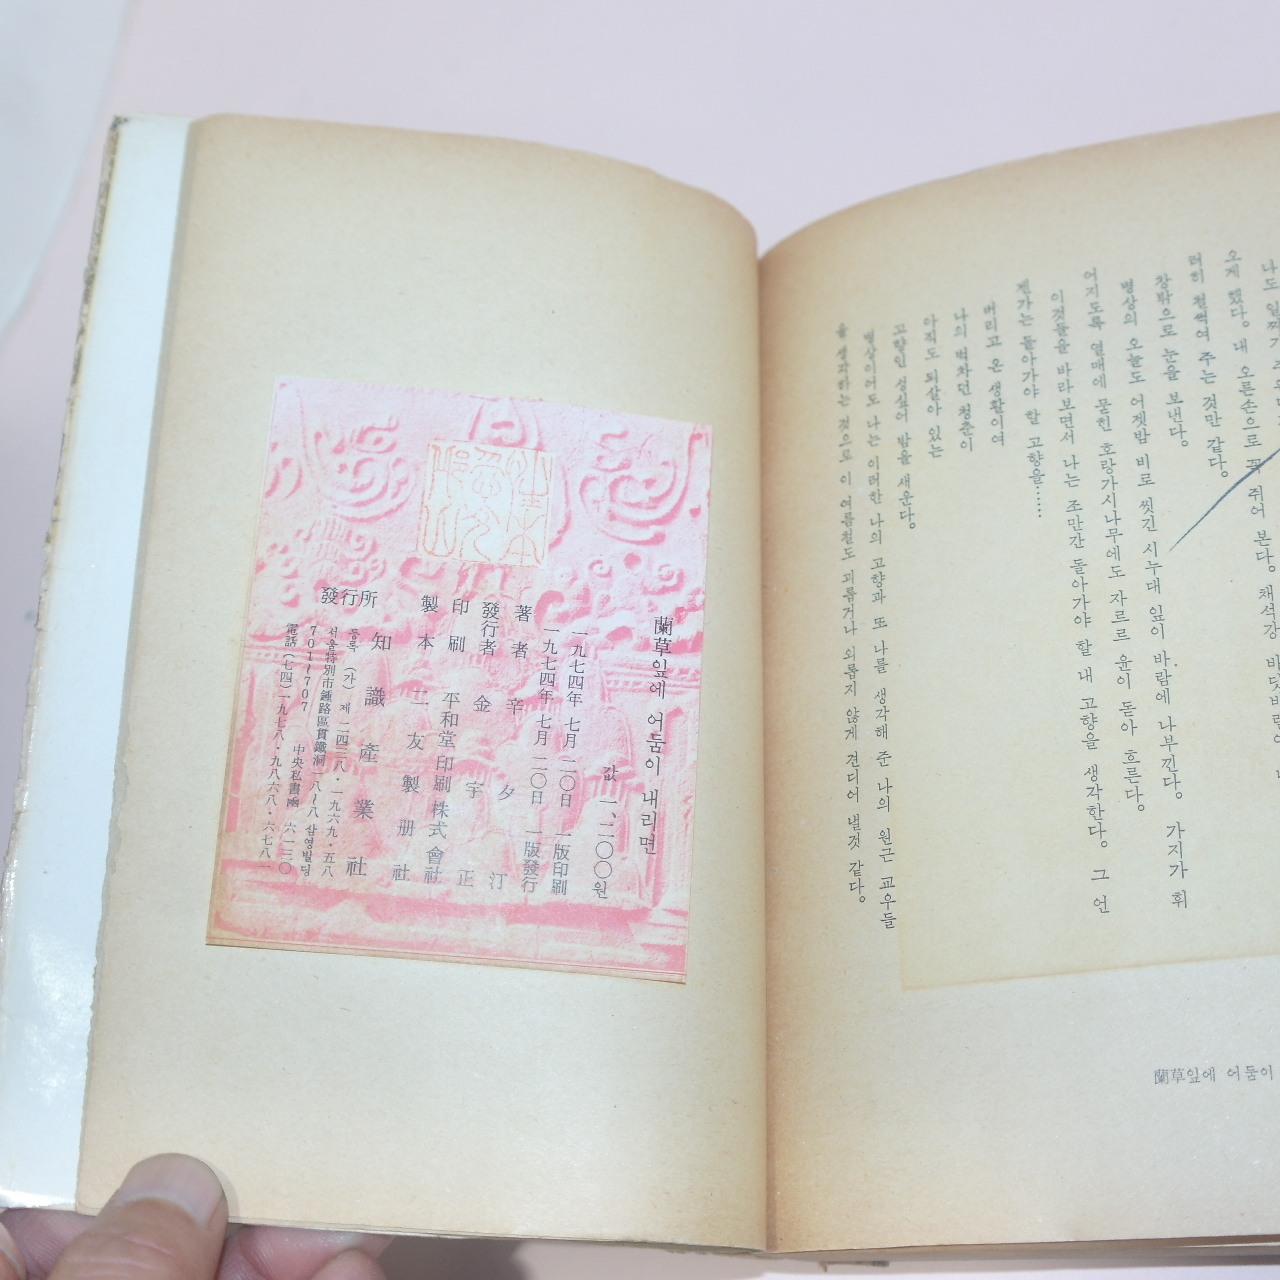 오게 했다. 내 오른손으로 꼭 쥐어 본다. 채석강
러히 철썩여 주는 것만 같다.
창밖으로 눈을 보낸다.
병상의 오늘도 어젯밤 비로 씻긴 시누대 잎이 바람에 나부낀다. 가지가 휘
어지도록 열매에 묻힌 호랑가시나무에도 자르르 윤이 돋아 흐른다.
이것들을 바라보면서 나는 조만간 돌아가야 할 내 고향을 생각한다. 그 언
젠가는 돌아가야 할 고향을……
버리고 온 생활이여
나의 벅차던 청춘이
아직도 되살아 있는
고향인 성싶어 밤을 새운다.
병상이어도 나는 이러한 나의 고향과 또 나를 생각해 준 나의 원근 교우들
을 생각하는 것으로 이 여름철도 괴롭거나 외롭지 않게 견디어 낼것 같다.
蘭草잎에 어둠이
蘭草잎에 어둠이 내리면
값 一、二〇〇원
一九七四年 七月 二〇日 一版印刷
一九七四年 七月 二〇日 一版發行
著者 辛夕汀
發行者 金宇正
印刷 平和堂印刷株式會社
製本 二友製册社
發行所 知識產業社
등록 (가) 제 二四三八·一九六九·五八
서울特別市鍾路區貫鐵洞一八~八 삼영빌딩
701~707 中央私書函 六一二〇
電話(七四)一九七八·九八六八·六七八一